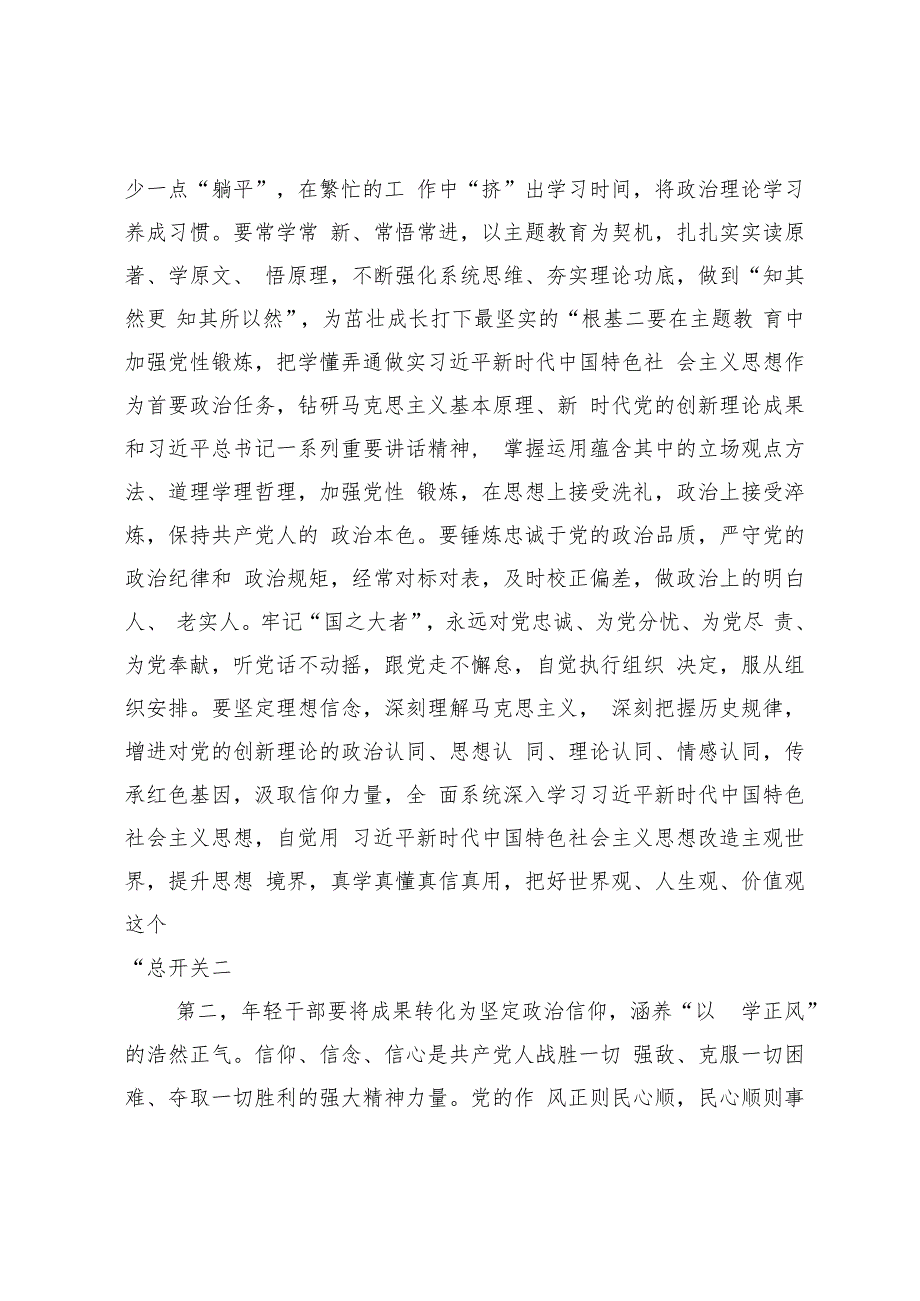 少一点“躺平”，在繁忙的工 作中“挤”出学习时间，将政治理论学习
养成习惯。要常学常 新、常悟常进，以主题教育为契机，扎扎实实读原
著、学原文、 悟原理，不断强化系统思维、夯实理论功底，做到“知其
然更 知其所以然”，为茁壮成长打下最坚实的“根基二要在主题教 育中
加强党性锻炼，把学懂弄通做实习近平新时代中国特色社 会主义思想作
为首要政治任务，钻研马克思主义基本原理、新 时代党的创新理论成果
和习近平总书记一系列重要讲话精神， 掌握运用蕴含其中的立场观点方
法、道理学理哲理，加强党性 锻炼，在思想上接受洗礼，政治上接受淬
炼，保持共产党人的 政治本色。要锤炼忠诚于党的政治品质，严守党的
政治纪律和 政治规矩，经常对标对表，及时校正偏差，做政治上的明白
人、 老实人。牢记“国之大者”，永远对党忠诚、为党分忧、为党尽 责、
为党奉献，听党话不动摇，跟党走不懈怠，自觉执行组织 决定，服从组
织安排。要坚定理想信念，深刻理解马克思主义， 深刻把握历史规律，
增进对党的创新理论的政治认同、思想认 同、理论认同、情感认同，传
承红色基因，汲取信仰力量，全 面系统深入学习习近平新时代中国特色
社会主义思想，自觉用 习近平新时代中国特色社会主义思想改造主观世
界，提升思想 境界，真学真懂真信真用，把好世界观、人生观、价值观
这个
“总开关二
第二，年轻干部要将成果转化为坚定政治信仰，涵养“以 学正风”
的浩然正气。信仰、信念、信心是共产党人战胜一切 强敌、克服一切困
难、夺取一切胜利的强大精神力量。党的作 风正则民心顺，民心顺则事